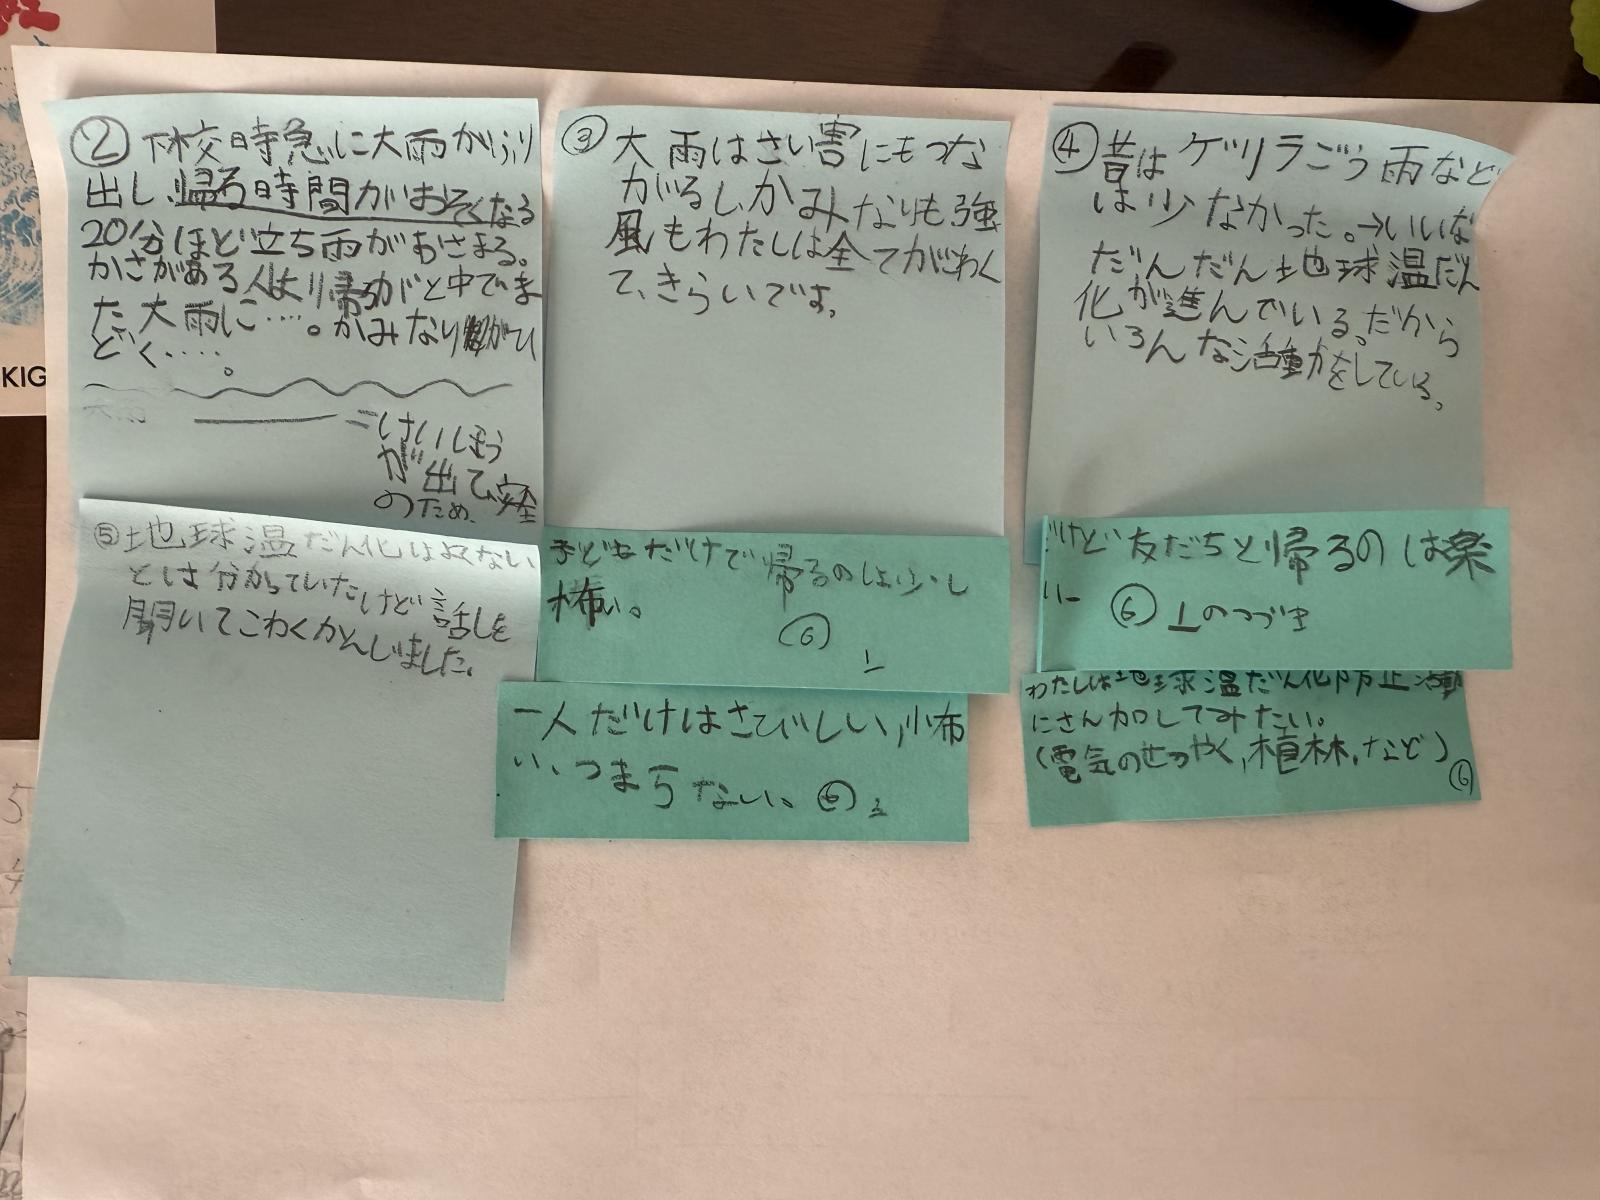 KIG
② 下校時急に大雨がふり
出し、帰る時間がおそくなる
20分ほど立ち雨がおさまる。
かさがある人より帰がと中でま
た大雨に…。かみなりがひ
どく…。
大雨
=けいほう
が出て、安全
のため、
③ 大雨はさい害にもつな
がるしかみなりも強
風もわたしは全てがこわく
て、きらいです。
④ 昔はゲリラごう雨など
は少なかった。→いいな
だんだん地球温だん
化が進んでいる。だから
いろんな活動をしている。
⑤ 地球温だん化はよくない
とは分かっていたけど話しを
聞いてこわくかんじました。
子どもだけで帰るのは少し
怖い。
⑥ 1
一人だけはさびしい、怖
い、つまらない、⑥ 2
だけど友だちと帰るのは楽
しい
⑥ 1のつづき
わたしは地球温だん化防止活動
にさん加してみたい。
(電気のせつやく,植林,など)
⑥